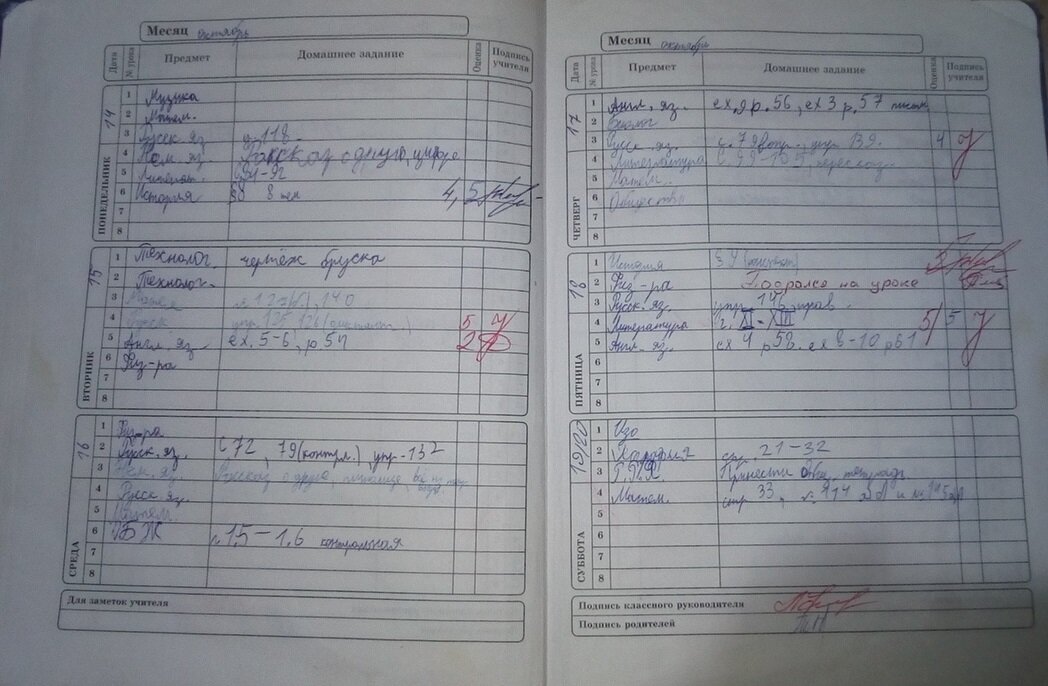 Месяц октябрь
Дата № урока Предмет Домашнее задание Оценка Подпись учителя
ПОНЕДЕЛЬНИК 14
1 Музыка
2 Матем.
3 Русск. яз. у. 118
4 Нем. яз. Рассказ о друге
5 Литерат. 91-92
6 История §8 8 4, 5
7
8
ВТОРНИК 15
1 Технолог. чертёж бруска
2 Технолог.
3 Матем 127 140
4 Русск. упр. 125, 126 5
5 Англ. яз. ex. 5-6, p 57 2
6 Физ-ра
7
8
СРЕДА 16
1 Физ-ра
2 Русск. яз. с 72, 79 (контрл.) упр-132
3 Нем. яз. Рассказ о друге
4 Русск яз.
5 Матем.
6 ОБЖ 1.5-1.6 контрольная
7
8
Для заметок учителя
Месяц октябрь
Дата № урока Предмет Домашнее задание Оценка Подпись учителя
ЧЕТВЕРГ 17
1 Англ. яз. ex. 9 p. 56, ex 3 p. 57 письм
2 Биолог
3 Русск. яз. с. 79 упр. 139 4
4 Литература с. 99-105 пересказ
5 Матем.
6 Общество
7
8
ПЯТНИЦА 18
1 История § 9 5
2 Физ-ра Подрался на уроке
3 Русск. яз. упр. 146
4 Литература г. XI-XIII 5/5
5 Англ. яз. ex 4 p 58. ex 8-10 p 61
6
7
8
СУББОТА 19/20
1 Изо
2 География стр. 21-32
3 Принести тетрадь
4 Матем. стр 33, 114
5
6
7
8
Подпись классного руководителя
Подпись родителей